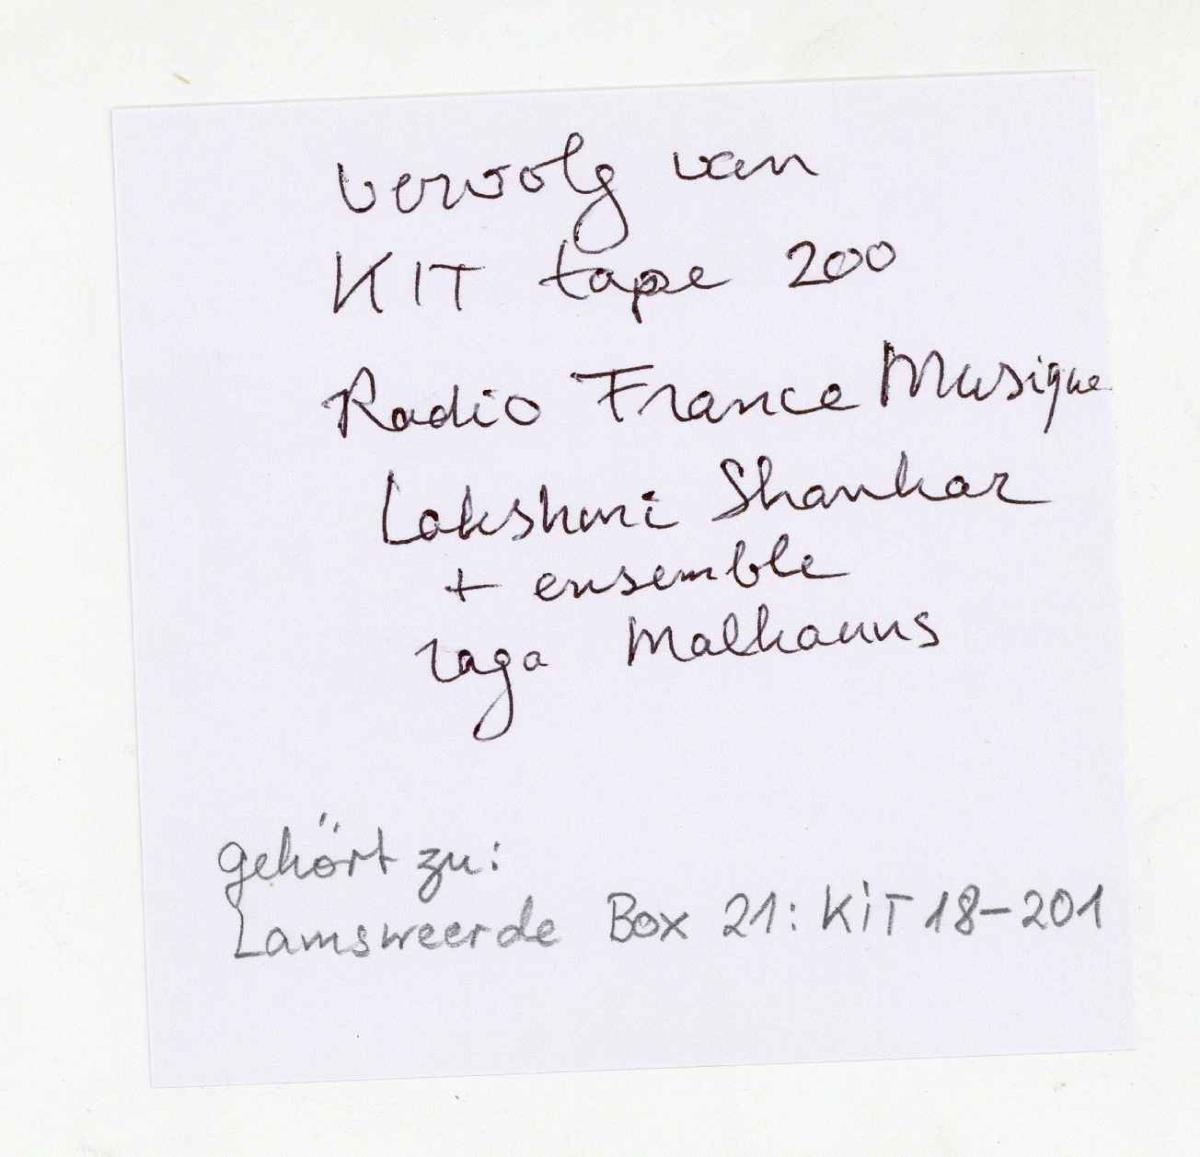 vervolg van
KIT tape 200
Radio France Musique
Lakshmi Shankar
+ ensemble
raga Malkauns
gehört zu:
Lamsweerde Box 21: KiT 18-201